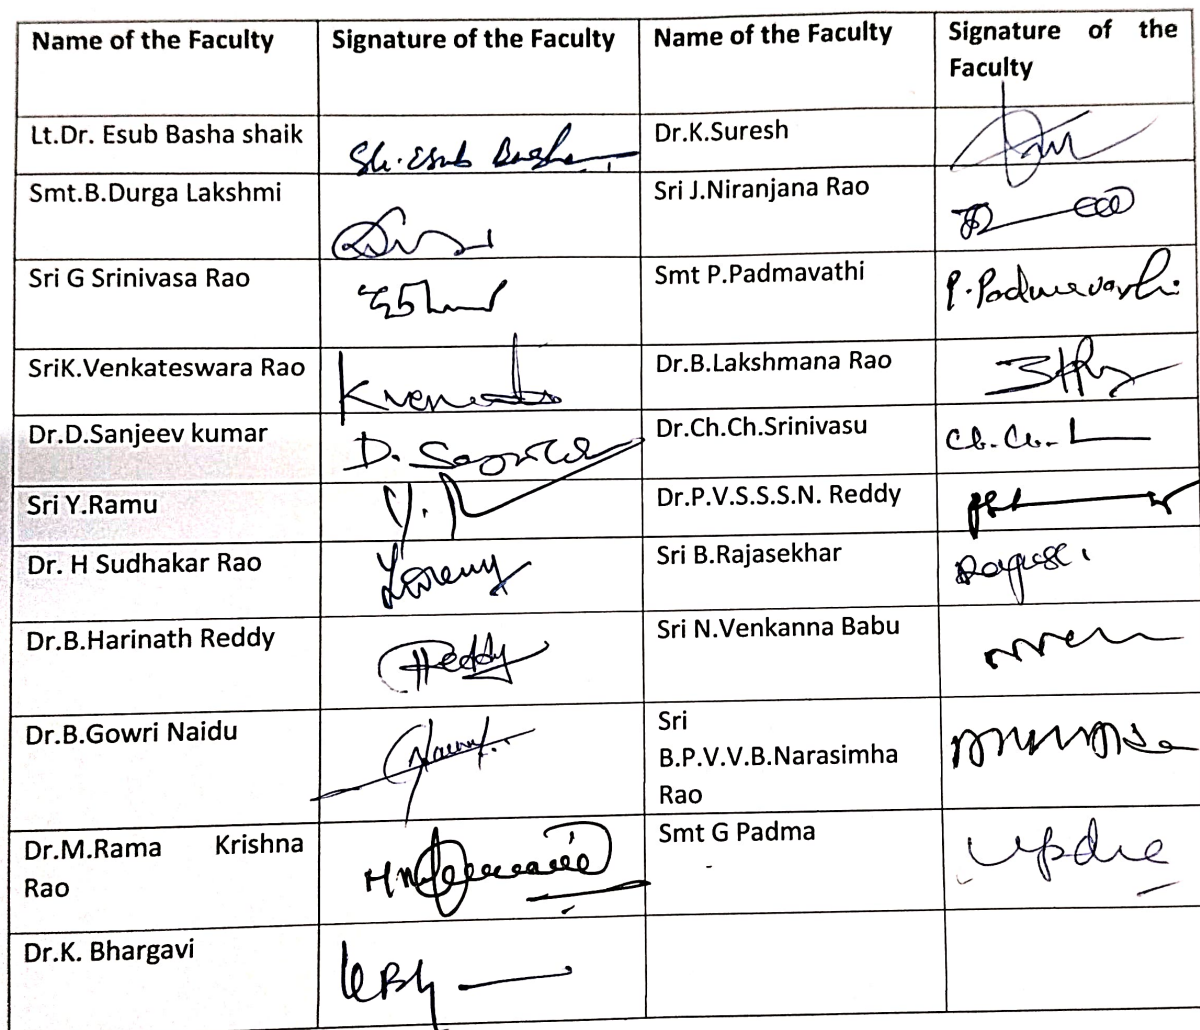 Name of the Faculty Signature of the Faculty Name of the Faculty Signature of the
Faculty
Lt.Dr. Esub Basha shaik Sk.Esub Basha Dr.K.Suresh
Smt.B.Durga Lakshmi Sri J.Niranjana Rao
Sri G Srinivasa Rao Smt P.Padmavathi P.Padmavathi
SriK.Venkateswara Rao Dr.B.Lakshmana Rao
Dr.D.Sanjeev kumar D. Dr.Ch.Ch.Srinivasu Ch.Ch.
Sri Y.Ramu Y. Dr.P.V.S.S.S.N. Reddy
Dr. H Sudhakar Rao Sri B.Rajasekhar
Dr.B.Harinath Reddy Reddy Sri N.Venkanna Babu
Dr.B.Gowri Naidu Sri
B.P.V.V.B.Narasimha
Rao
Dr.M.Rama Krishna Smt G Padma
Rao
Dr.K. Bhargavi